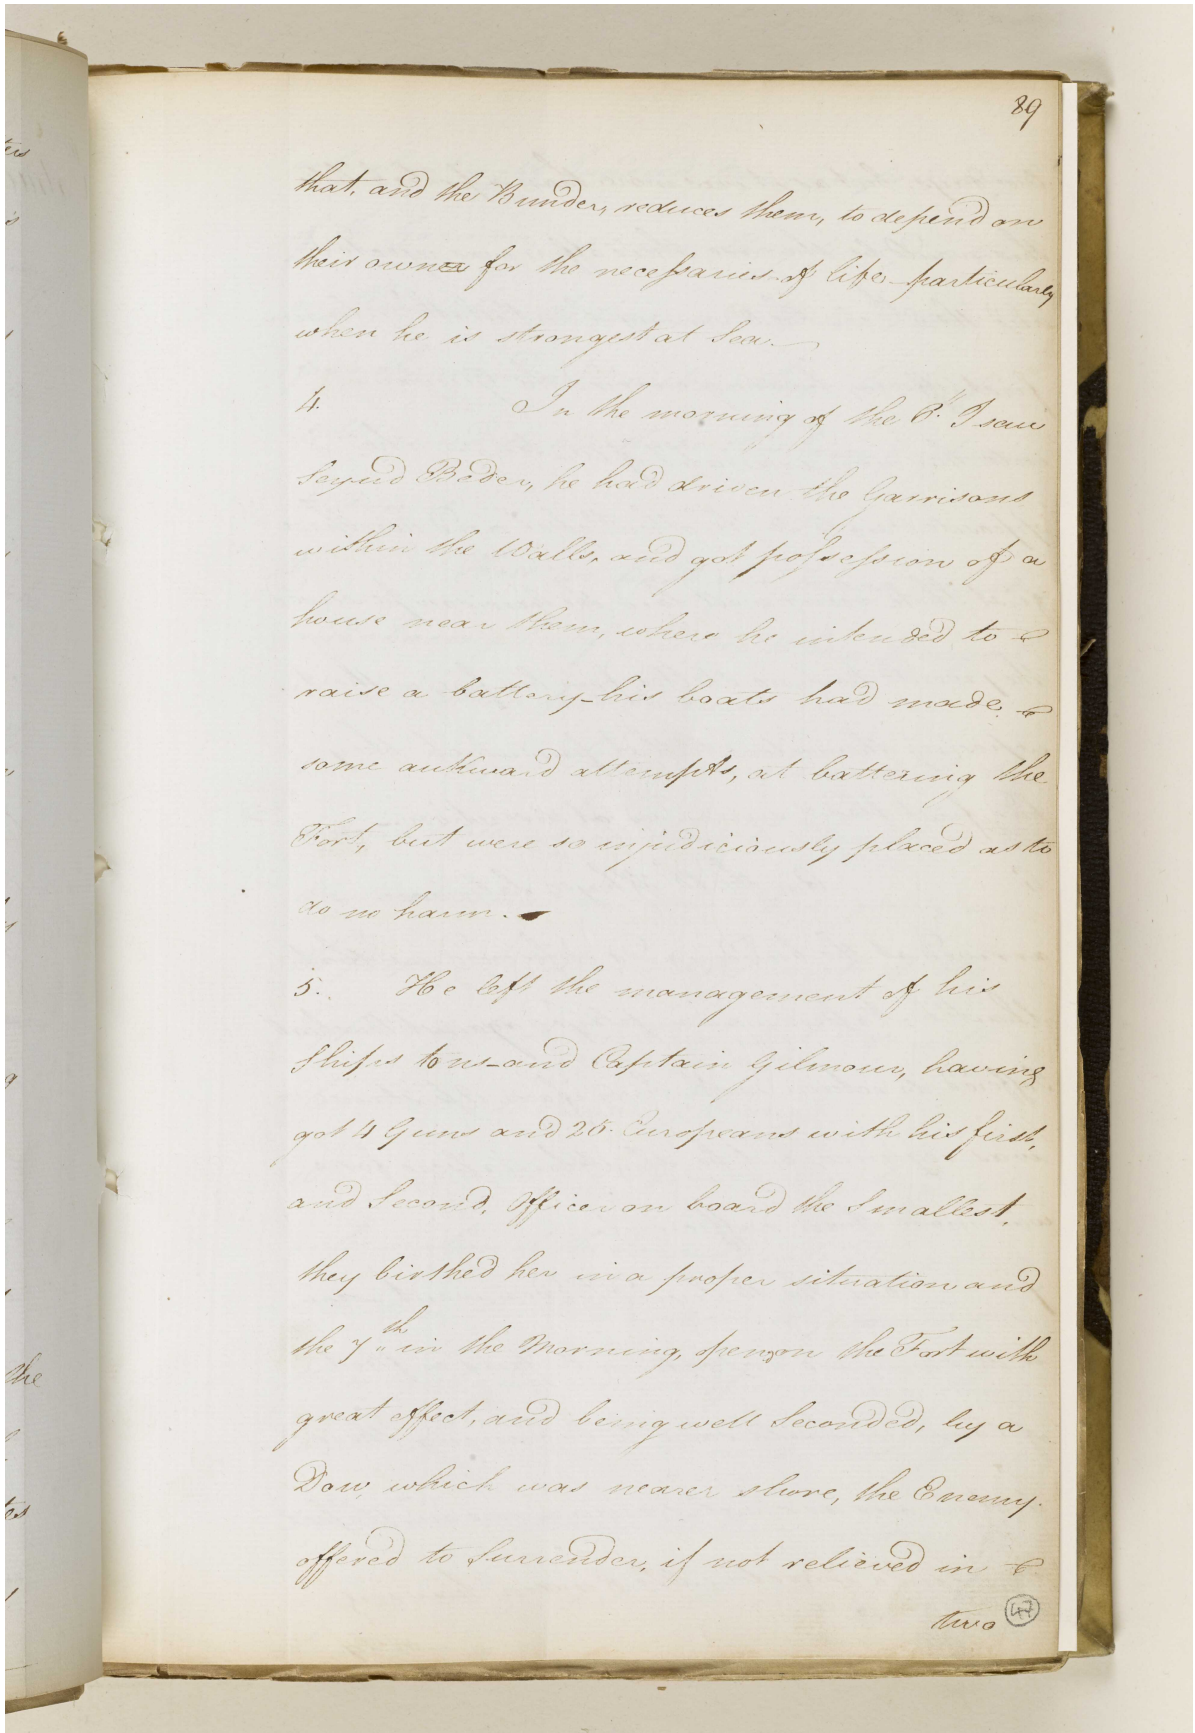 89
that, and the Bunder, reduces them, to depend on
their owner for the necessaries of life particularly
when he is strongest at Sea.
4. In the morning of the I saw
Seyud Beder, he had driven the Garrisons
within the Walls, and got possession of a
house near them, where he intended to
raise a battery - his boats had made
some aukward attempts, at battering the
Fort, but were so injudiciously placed as to
do no harm.
5. He left the management of his
Ships to us - and Captain Gilmour, having
got 4 Guns and 25 Europeans with his first,
and Second, Officer on board the Smallest,
they birthed her in a proper situation and
the 7th in the Morning, open on the Fort with
great effect, and being well Seconded, by a
Dow, which was nearer shore, the Enemy
offered to Surrender, if not relieved in
two
47
the